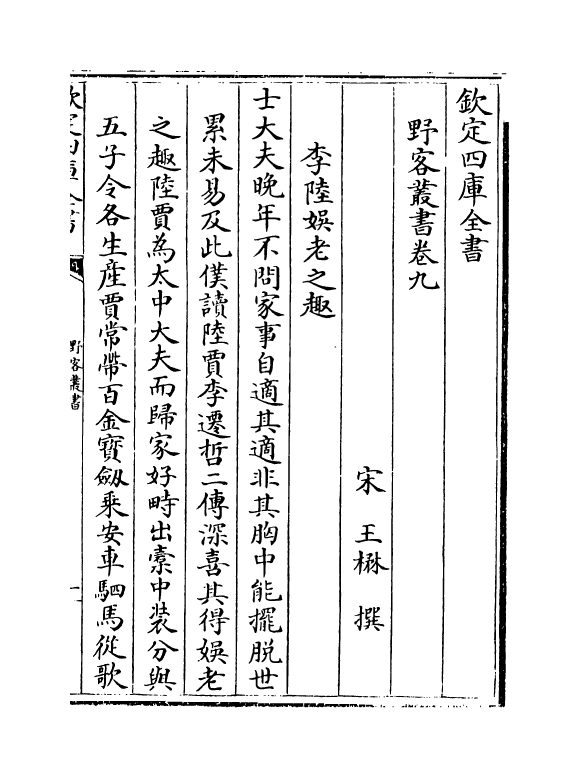 欽定四庫全書
野客叢書卷九
宋 王楙 撰
李陸娛老之趣
士大夫晚年不問家事自適其適非其胸中能擺脱世
累未易及此僕讀陸賈李遷哲二傳深喜其得娛老
之趣陸賈為太中大夫而歸家好畤出橐中装分與
五子令各生産賈常帶百金寳劔乘安車駟馬從歌
欽定四庫全書
野客叢書
一